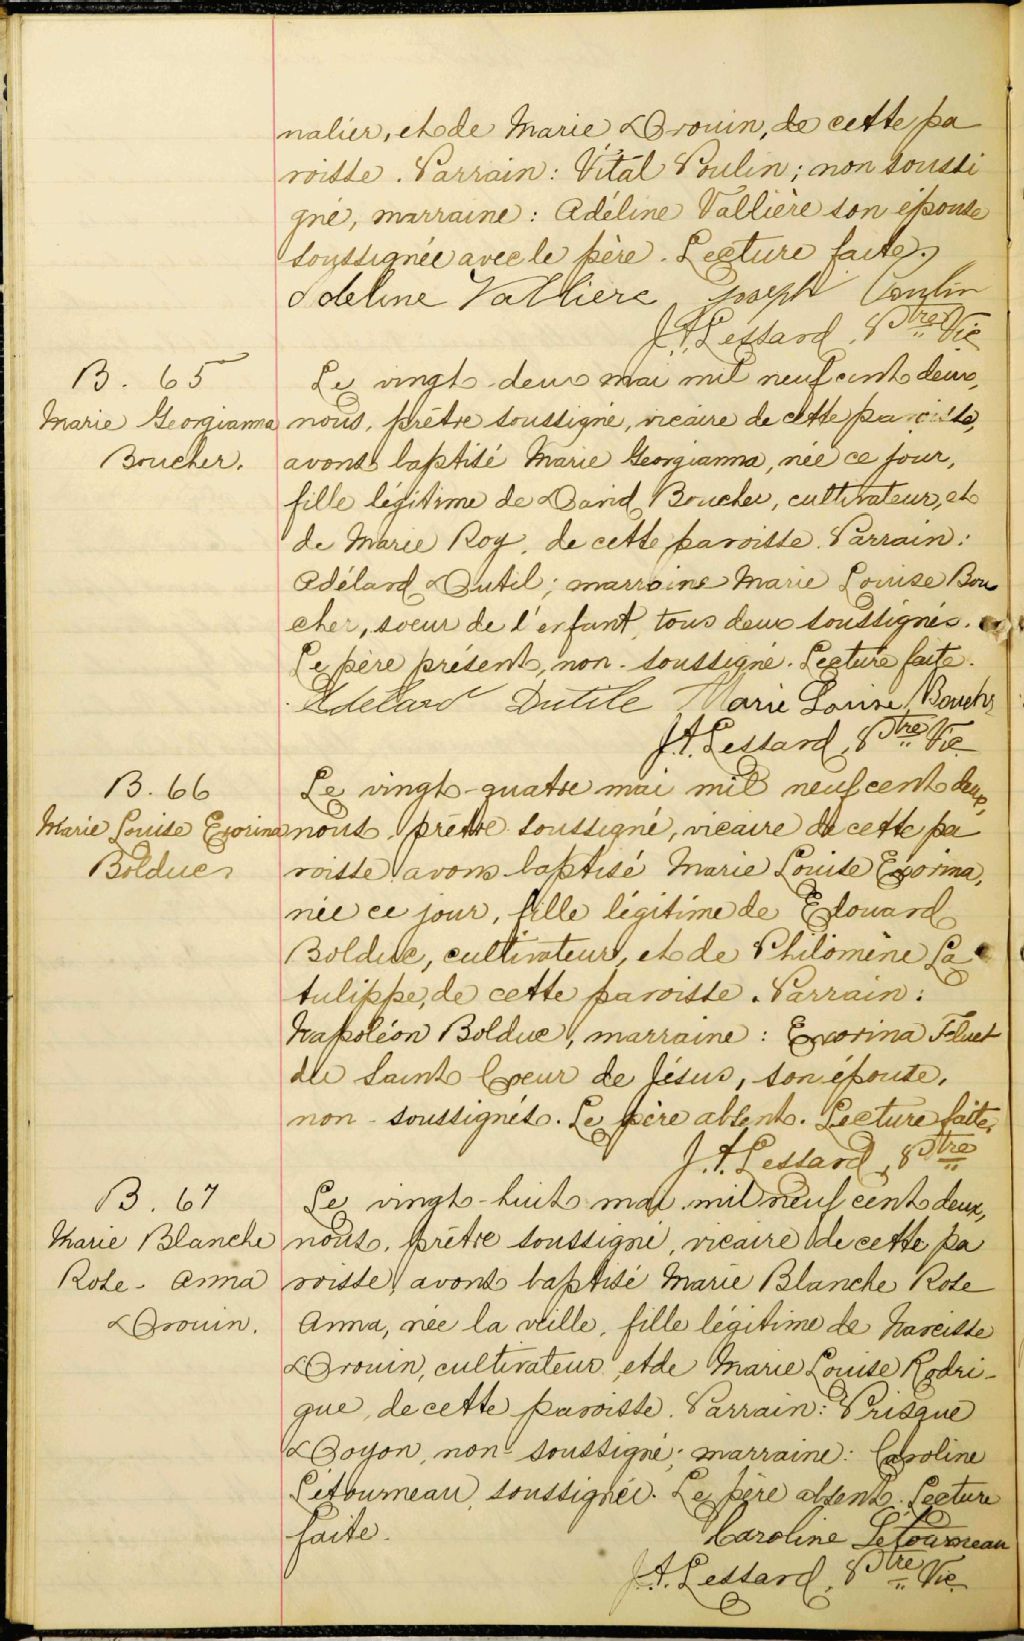 nalier, et de Marie Drouin, de cette pa
roisse. Parrain: Vital Poulin; non soussi
gné, marraine: Adéline Vallière son épouse
soussignée avec le père. Lecture faite.
Adeline Valliere Joseph Poulin
J.A. Lessard, Ptre Vic
B. 65
Marie Georgianna
Boucher.
Le vingt-deux mai mil neuf cent deux,
nous, prêtre soussigné, vicaire de cette paroisse,
avons baptisé Marie Georgianna, née ce jour,
fille légitime de David Boucher, cultivateur, et
de Marie Roy, de cette paroisse. Parrain:
Adélard Dutil; marraine Marie Louise Bou
cher, soeur de l'enfant, tous deux soussignés.
Le père présent, non-soussigné. Lecture faite.
Adélard Dutile Marie Louise Boucher
J.A. Lessard, Ptre Vic
B. 66
Marie Louise Exorina
Bolduc
Le vingt-quatre mai mil neuf cent deux,
nous, prêtre soussigné, vicaire de cette pa
roisse avons baptisé Marie Louise Exorina,
née ce jour, fille légitime de Edouard
Bolduc, cultivateur, et de Philomène La
tulippe, de cette paroisse. Parrain:
Napoléon Bolduc, marraine: Exorina Fluet
du Saint Coeur de Jésus, son épouse,
non-soussignés. Le père absent. Lecture faite.
J.A. Lessard, Ptre
B. 67
Marie Blanche
Rose-Anna
Drouin.
Le vingt-huit mai mil neuf cent deux,
nous, prêtre soussigné, vicaire de cette pa
roisse, avons baptisé Marie Blanche Rose
Anna, née la veille, fille légitime de Narcisse
Drouin, cultivateur, et de Marie Louise Rodri-
gue, de cette paroisse. Parrain: Prisque
Doyon, non-soussigné; marraine: Caroline
Létourneau, soussignée. Le père absent. Lecture
faite.
Caroline Letourneau
J.A. Lessard, Ptre Vic